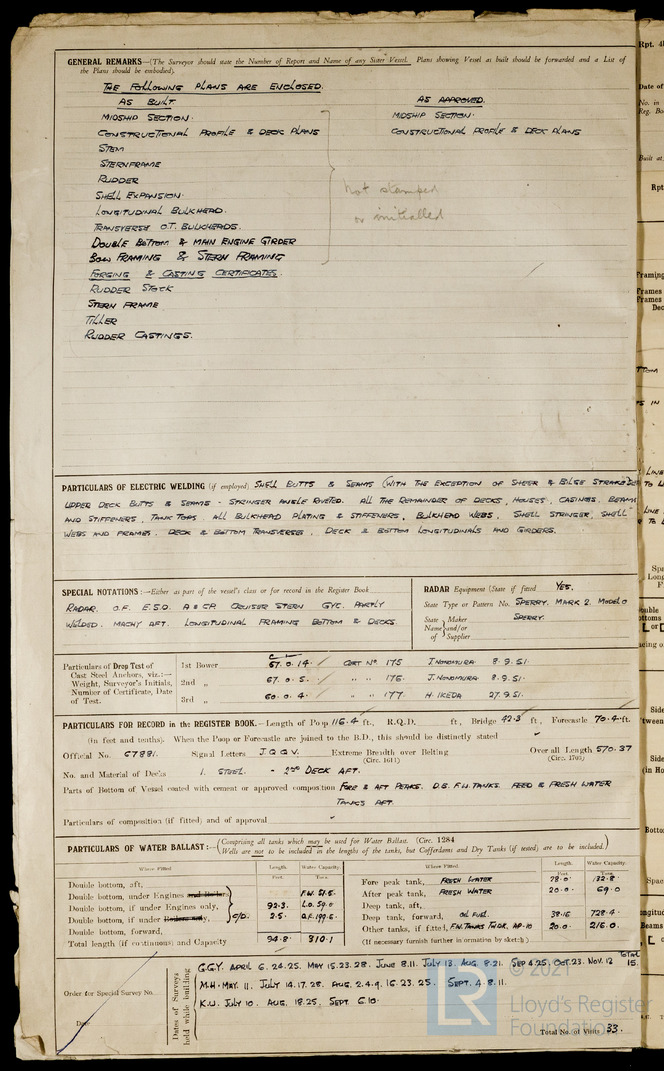 GENERAL REMARKS—(The Surveyor should state the Number of Report and Name of any Sister Vessel. Plans showing Vessel as built should be forwarded and a List of
the Plans should be embodied).
THE FOLLOWING PLANS ARE ENCLOSED.
AS BUILT
AS APPROVED.
MIDSHIP SECTION.
MIDSHIP SECTION.
CONSTRUCTIONAL PROFILE & DECK PLANS
CONSTRUCTIONAL PROFILE & DECK PLANS
STEM
STERNFRAME
RUDDER
SHELL EXPANSION.
LONGITUDINAL BULKHEAD.
TRANSVERSE O.T. BULKHEADS.
DOUBLE BOTTOM & MAIN ENGINE GIRDER
BOW FRAMING & STERN FRAMING
not stamped
or initialled
FORGING & CASTING CERTIFICATES.
RUDDER STOCK
STERN FRAME
TILLER
RUDDER CASTINGS.
PARTICULARS OF ELECTRIC WELDING (if employed) SHELL BUTTS & SEAMS (WITH THE EXCEPTION OF SHEER & BILGE STRAKES)
UPPER DECK BUTTS & SEAMS - STRINGER ANGLE RIVETED. ALL THE REMAINDER OF DECKS, HOUSES, CASINGS, BEAMS
AND STIFFENERS, TANK TOPS. ALL BULKHEAD PLATING & STIFFENERS, BULKHEAD WEBS, SHELL STRINGER, SHELL
WEBS AND FRAMES. DECK & BOTTOM TRANSVERSES. DECK & BOTTOM LONGITUDINALS AND GIRDERS.
SPECIAL NOTATIONS:—Either as part of the vessel's class or for record in the Register Book
RADAR. O.F. E.S.D. A & CP. CRUISER STERN GYC. PARTLY
WELDED. MACHY AFT. LONGITUDINAL FRAMING BOTTOM & DECKS.
RADAR Equipment (State if fitted YES.
State Type or Pattern No. SPERRY. MARK 2. MODEL O
State Maker
Name and/or
of Supplier
SPERRY.
Particulars of Drop Test of
Cast Steel Anchors, viz.:—
Weight, Surveyor's Initials,
Number of Certificate, Date
of Test.
1st Bower 67.0.14. CERT Nº 175 J. NONOMURA 8.9.51.
2nd „ 67.0.5. „ „ 176 J. NONOMURA 8.9.51.
3rd „ 60.0.4. „ „ 177 H. IKEDA 27.9.51.
PARTICULARS FOR RECORD in the REGISTER BOOK.—Length of Poop 116.4 ft., R.Q.D. ft., Bridge 42.3 ft., Forecastle 70.4 ft.
(in feet and tenths). When the Poop or Forecastle are joined to the B.D., this should be distinctly stated
Official No. 67881. Signal Letters J.Q.G.V. Extreme Breadth over Belting Over all Length 570.37
(Circ. 1611) (Circ. 1703)
No. and Material of Decks 1. STEEL. - 2ND DECK AFT.
Parts of Bottom of Vessel coated with cement or approved composition FORE & AFT PEAKS. D.B. F.W. TANKS. FEED & FRESH WATER
TANKS AFT.
Particulars of composition (if fitted) and of approval
PARTICULARS OF WATER BALLAST:—(Comprising all tanks which may be used for Water Ballast. (Circ. 1284)
Wells are not to be included in the lengths of the tanks, but Cofferdams and Dry Tanks (if tested) are to be included.)
Where Fitted Length. Water Capacity. Where Fitted Length. Water Capacity.
Feet. Tons. Feet. Tons.
Double bottom, aft,
Double bottom, under Engines and Boilers
Double bottom, if under Engines only,
Double bottom, if under Boilers only,
Double bottom, forward,
Total length (if continuous) and Capacity
C/D.
F.W. 51.5.
92.3. L.O. 59.0
2.5. O.F. 199.6
94.8' 310.1
Fore peak tank, FRESH WATER 28.0' 132.8
After peak tank, FRESH WATER 20.0 69.0
Deep tank, aft,
Deep tank, forward, OIL FUEL. 38.16 728.4
Other tanks, if fitted, 20.0 216.0
(If necessary furnish further information by sketch).
Order for Special Survey No.
Date
Dates of Surveys
held while building
G.G.Y. APRIL 6. 24. 25. MAY 15. 23. 28. JUNE 8. 11. JULY 13. AUG. 8. 21. SEP 4. 25. OCT. 23. NOV. 12
TOTAL
15.
M.H. MAY. 11. JULY 14. 17. 28. AUG. 2. 4. 9. 16. 23. 25. SEPT. 4. 8. 11.
K.U. JULY 10. AUG. 18. 25. SEPT. 6. 10.
Total No. of Visits 33.
© 2021
LR
Lloyd's Register
Foundation
Rpt. 4
Date of
No. in
Reg. Bo
Built at
Rpt
Framing
Frames
Frames
Dec